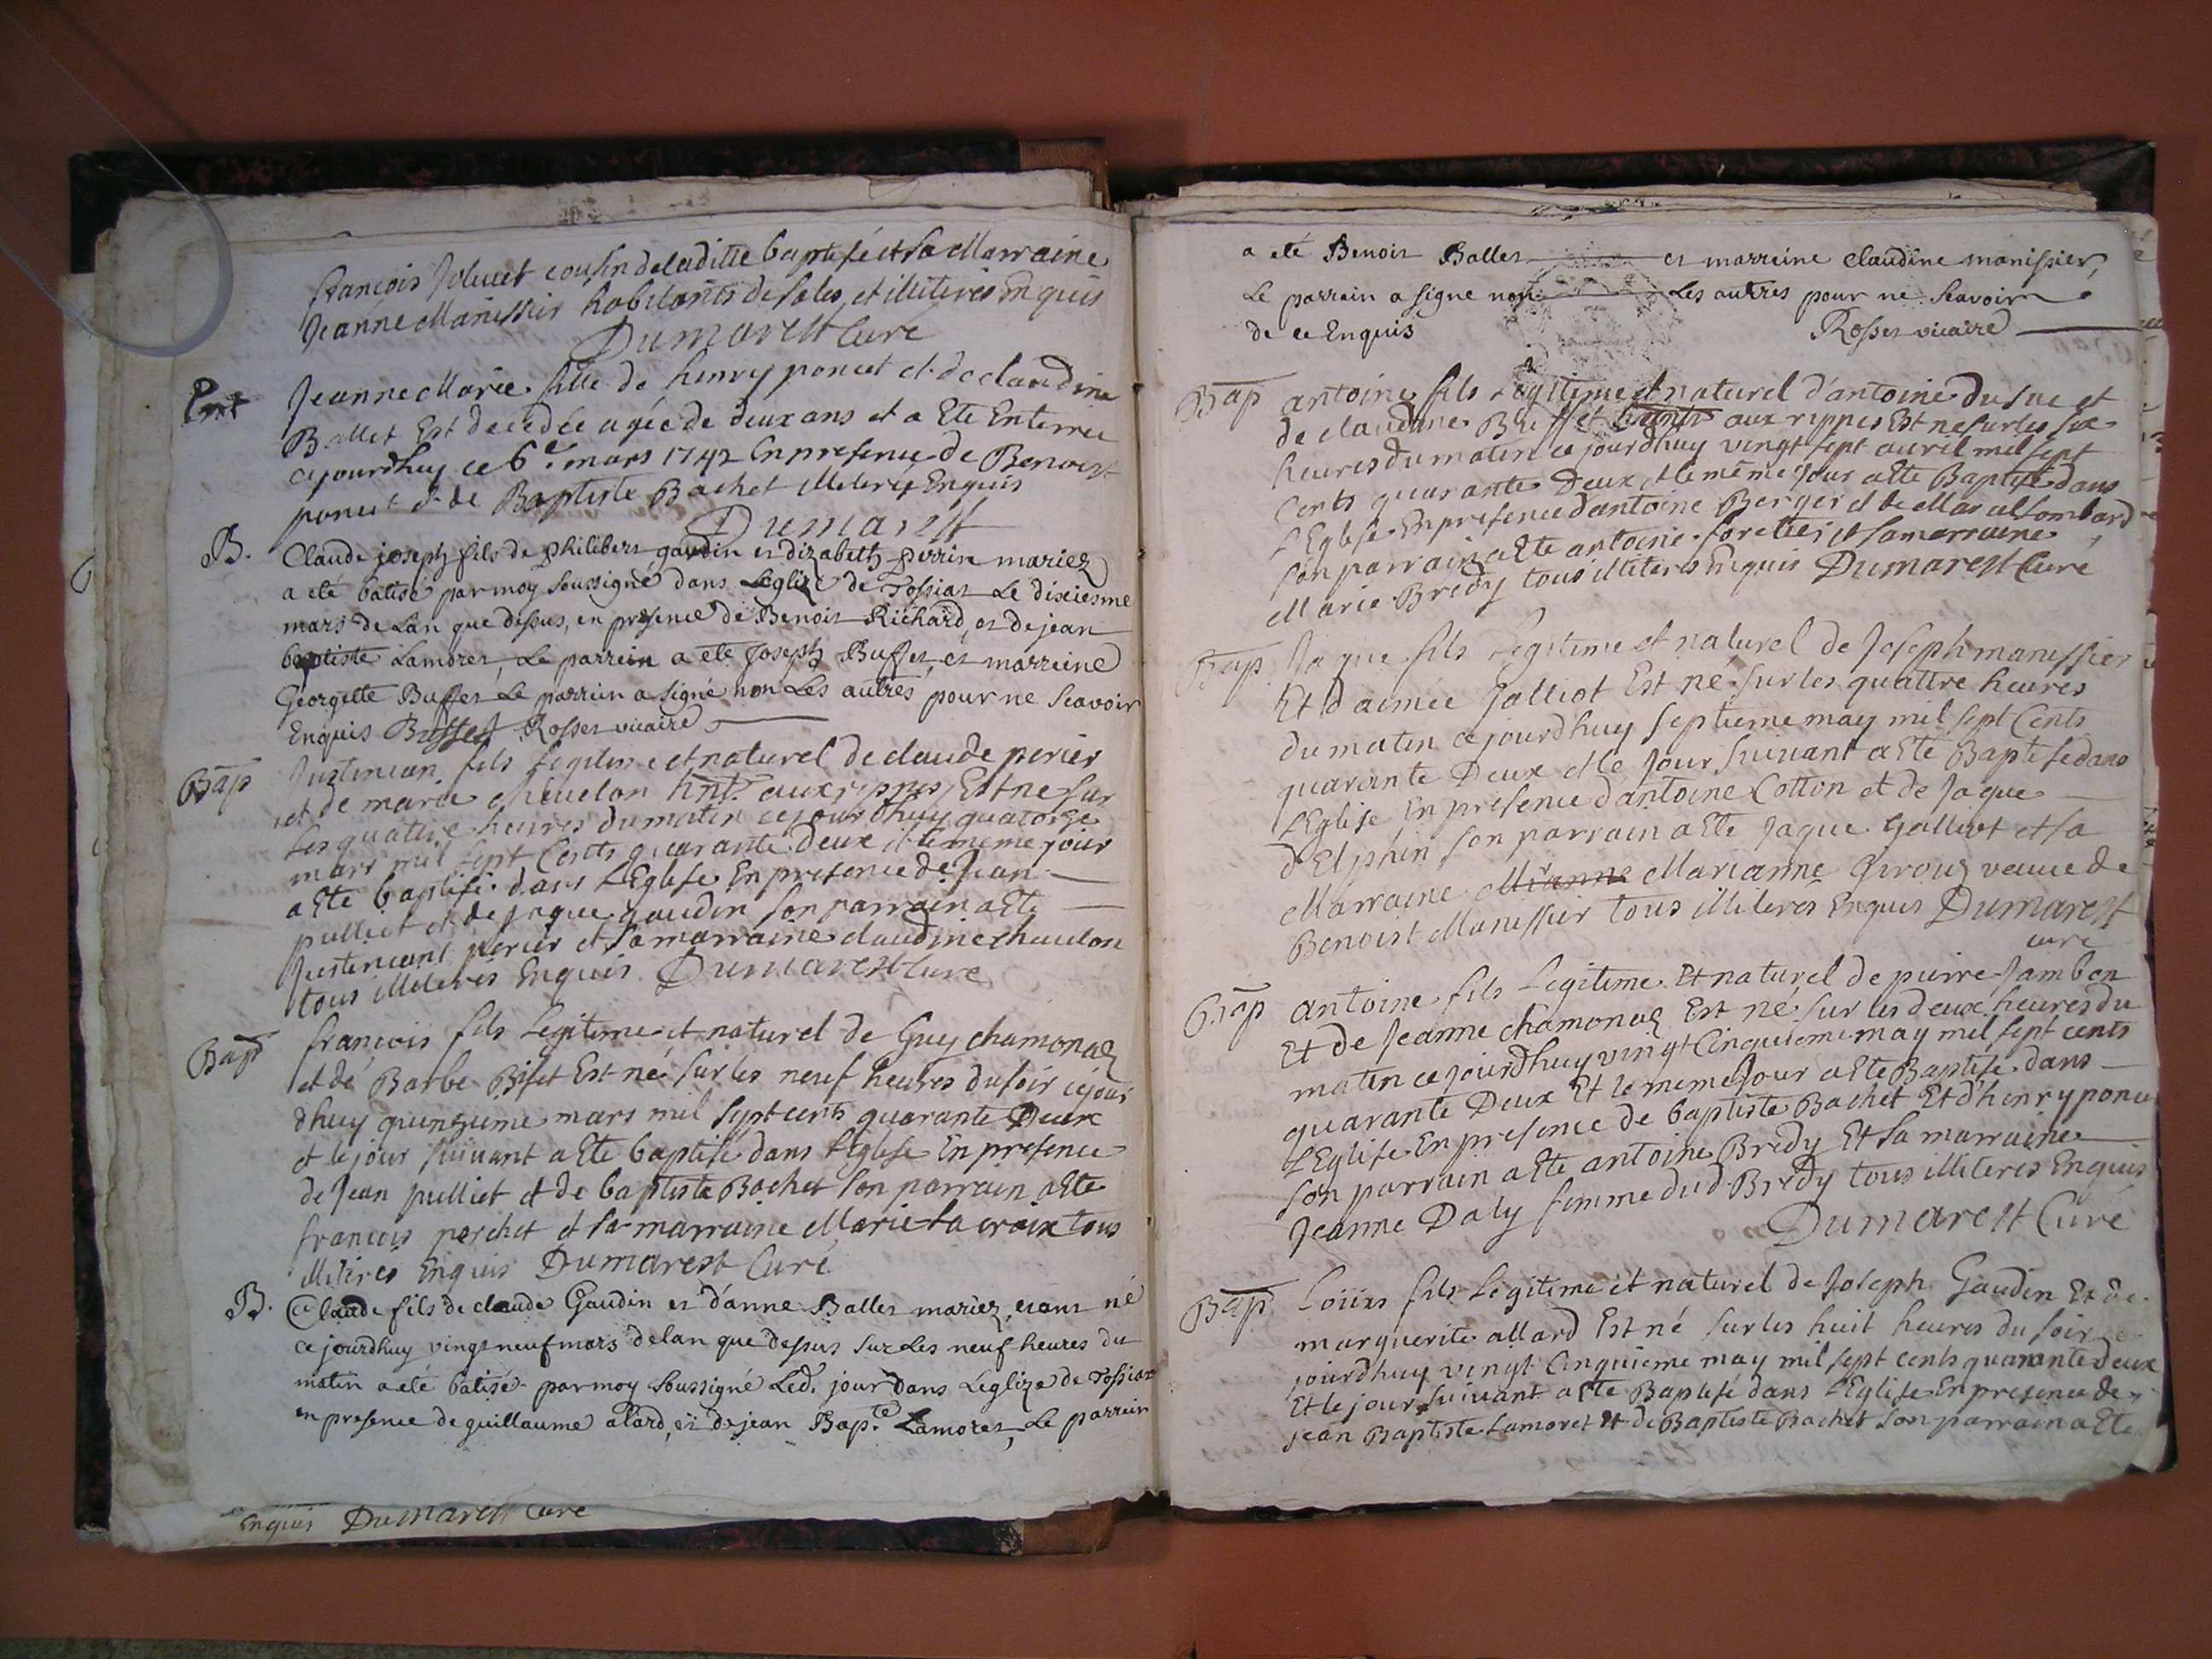 françois Joluet cousin de laditte baptisé et sa Marraine
Jeanne Manissier habitants de sales, et illiterés Enquis
Dumarest Curé
Ent Jeanne Marie fille de henry poncet et de claudine
Ballet Est decedée agée de deux ans et a Ete Enterree
cejourdhuy ce 6e mars 1742 En presence de Benoist
poncet & de Baptiste Bachet illiterés Enquis
Dumarest
B. Claude joseph fils de philibert gaudin et dizabeth perrin mariez
a eté batisé par moy soussigné dans Leglize de Tossiat Le dixiesme
mars de Lan que dessus, en presence de Benoit Richard, et de jean
baptiste Lamoret, Le parrein a ete Joseph Buffet, et marreine
Georgette Buffet Le parrein a signé non Les autres pour ne scavoir
Enquis Buffet Rosset vicaire
Bap Justinian fils Legitime et naturel de claude perier
et de marie chaudon hnt. aux rippes Est ne sur
Les quattre heures du matin cejourdhuy quatorze
mars mil sept Cents quarante deux et le meme jour
a Ete baptisé dans L'Eglise En presence de Jean
pulliet et de Jaque gaudin son parrain a Ete
Justiniant perier et sa marraine claudine chaudon
tous illiterés Enquis Dumarest Curé
Bap françois fils Legitime et naturel de Guy chamonal
et de Barbe Bifet Est né sur les neuf heures du soir cejour
dhuy quinzieme mars mil sept cents quarante Deux
et le jour suivant a Ete baptisé dans l'Eglise En presence
de Jean pulliet et de baptiste Bachet son parrain a Ete
françois perchet et sa marraine Marie La croix tous
illitérés Enquis Dumarest Curé
B. Claude fils de claude Gaudin et d'anne Ballet mariez, etant né
ce jourdhuy vingt neuf mars delan que dessus sur Les neuf heures du
matin a eté batisé par moy soussigné Led. jour dans Leglize de Tossiat
en presence de guillaume alard, et de jean Bap.te Lamoret, Le parrein
Enquis Dumarest Curé
a eté Benoit Ballet et marreine claudine manissier,
Le parrein a signe non Les autres pour ne scavoir
de ce Enquis Rosset vicaire
Bap antoine fils Legitime et naturel d'antoine dusuc et
de claudine Buffet hnts aux rippes Est ne sur les six
heures du matin ce jourdhuy vingt sept avril mil sept
Cents quarante Deux et le même Jour a Ete Baptisé dans
L'Eglise En presence d'antoine Berger et de Marcel Lombard
son parrain a Ete antoine foretier et sa marraine
Marie Bredy tous illiterés Enquis Dumarest Curé
Bap Jaque fils Legitime et naturel de Joseph manissier
Et d'aimée Galliot Est né sur les quattre heures
du matin cejourdhuy septieme may mil sept Cents
quarante Deux et le Jour suivant a Eté Baptisé dans
L'Eglise En presence d'antoine Cotton et de Jaque
d'Elphin son parrain a Ete Jaque Galliot et sa
Marraine Mrianne Marianne Giroud veuve de
Benoist Manissier tous illiterés Enquis Dumarest
curé
Bap antoine fils Legitime Et naturel de pierre Jambon
Et de Jeanne chamonal Est né sur les deux heures du
matin cejourdhuy vingt Cinquieme may mil sept cents
quarante Deux Et le meme Jour a Ete Baptisé dans
L'Eglise En presence de baptiste Bachet Et d'henry ponce
son parrain a Ete antoine Bredy Et sa marraine
Jeanne Daly femme dud. Bredy tous illiteres Enquis
Dumarest Curé
Bap Loüis fils Legitime et naturel de Joseph Gaudin Et de
marguerite allard Est né sur les huit heures du soir ce
jourdhuy vingt Cinquieme may mil sept cents quarante deux
Et le jour suivant a Ete Baptisé dans L'Eglise En presence de
jean Baptiste Lamoret Et de Baptiste Bachet son parrain a Ete